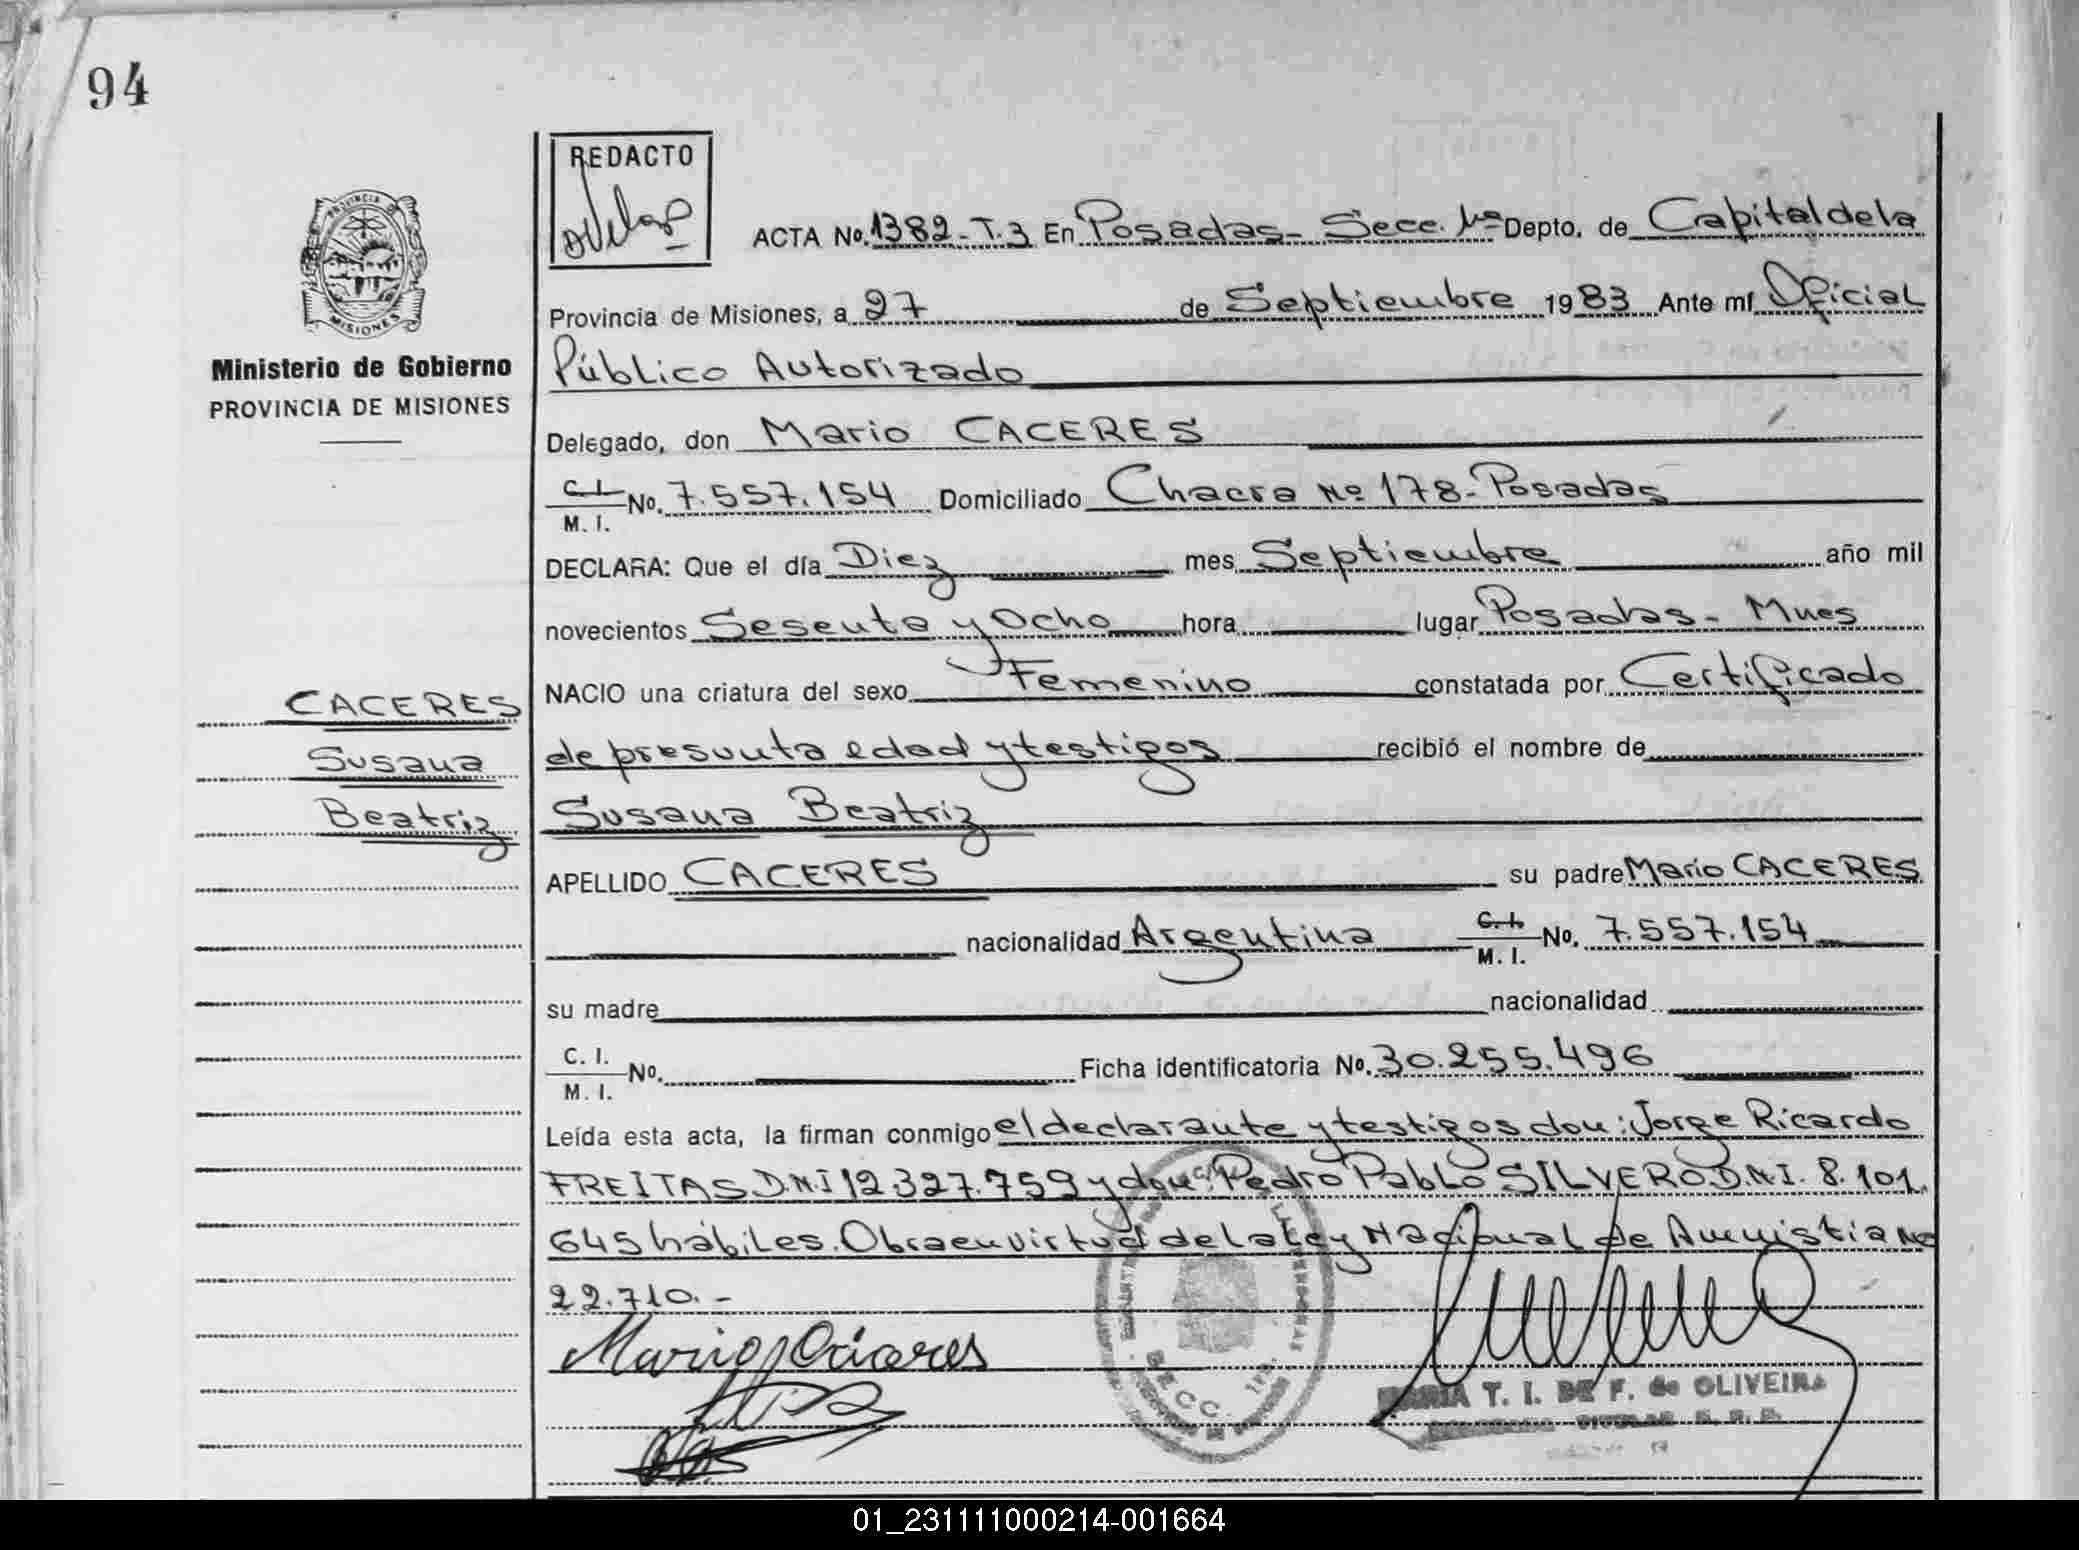 94
REDACTO
PROVINCIA DE
MISIONES
Ministerio de Gobierno
PROVINCIA DE MISIONES
ACTA No. 1382-T.3 En Posadas- Secc. 1ra Depto. de Capital de la
Provincia de Misiones, a 27 de Septiembre 1983 Ante mí Oficial
Público Autorizado
Delegado, don Mario CACERES
C. I. / M. I. No. 7.557.154 Domiciliado Chacra Nº 178-Posadas
DECLARA: Que el día Diez mes Septiembre año mil
novecientos Sesenta y Ocho hora lugar Posadas- Mnes
NACIO una criatura del sexo Femenino constatada por Certificado
de presunta edad y testigos recibió el nombre de
Susana Beatriz
CACERES
Susana
Beatriz
APELLIDO CACERES su padre Mario CACERES
nacionalidad Argentina C. I. / M. I. No. 7.557.154
su madre nacionalidad
C. I. / M. I. No. Ficha identificatoria No. 30.255.496
Leída esta acta, la firman conmigo el declarante y testigos don: Jorge Ricardo
FREITAS D.N.I 12.327.759 y don: Pedro Pablo SILVERO D.N.I. 8.101.
645 hábiles. Obra en virtud de la Ley Nacional de Amnistia Nº
22.710.-
Mario Cáceres
SECC. 1ra.
MARIA T. I. DE F. de OLIVEIRA
01_231111000214-001664